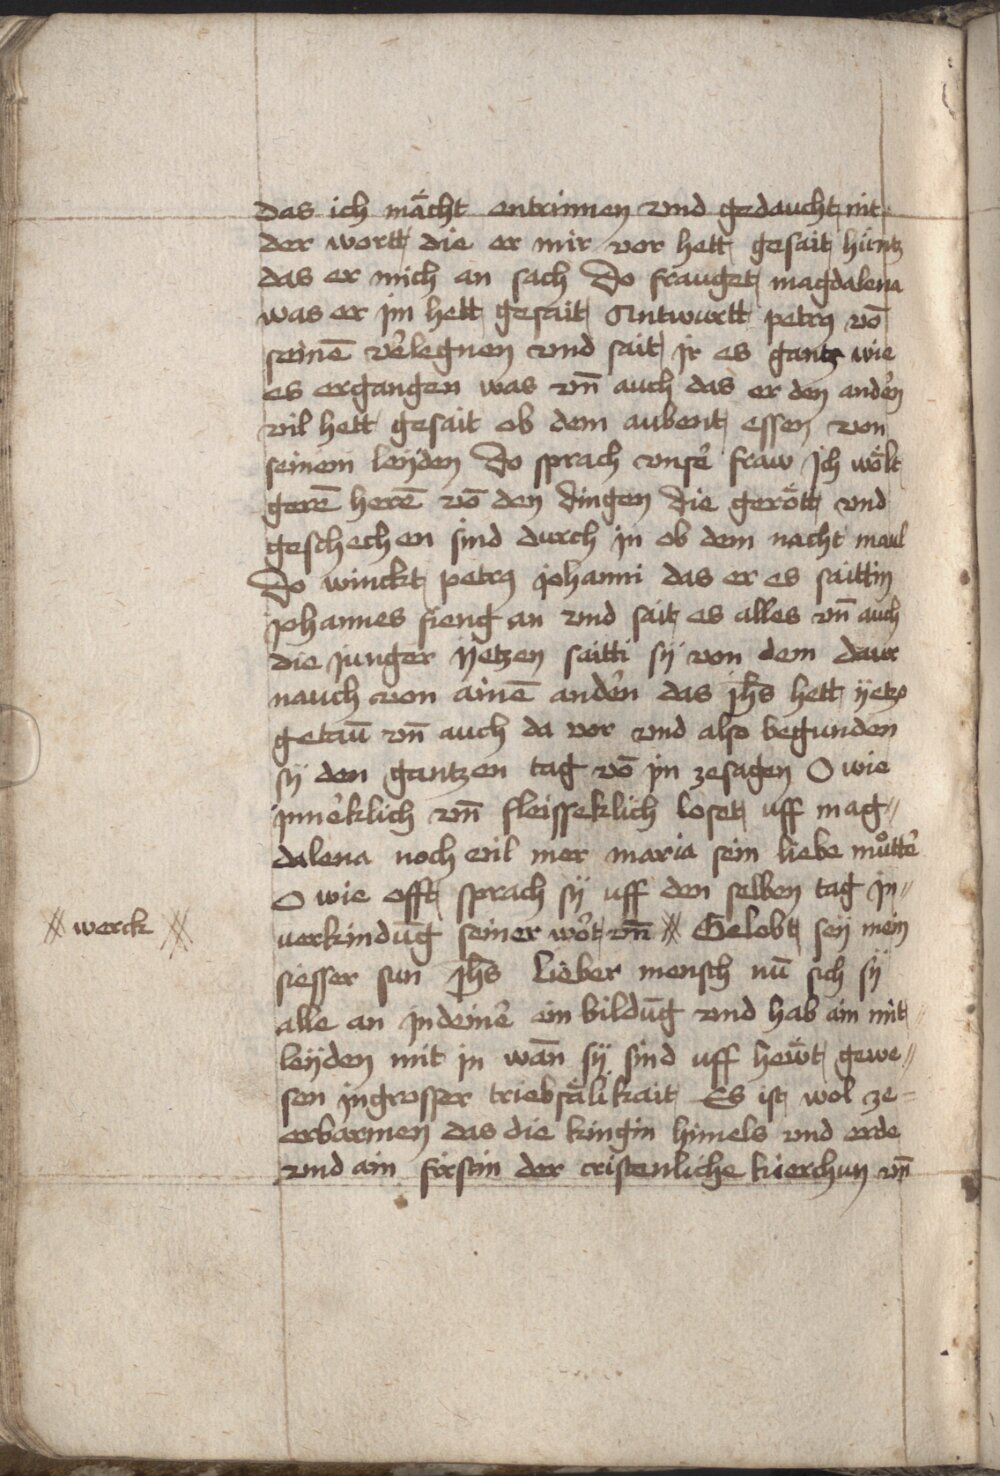 das ich mächt entrinnen vnd gedaucht nit
der wortt die er mir vor hett gesait hüntz
das er mich an sach Do frauget magdalena
was er jm hett gesait Antwurtt petrꝯ vō
seinē v̓legnen vnd sait jr es gantz wie
es ergangen was vn̄ auch das er den and̓n
vil hett gesait ob dem aubent essen von
seinem leyden Do sprach vnse᷑ fraw Jch wölt
gerē herē vō den dingen die gerött vnd
geschechen sind durch jn ob dem nacht maul
Do winckt petrꝯ johanni das er es saittin
johannes fieng an vnd sait es alles vn̄ auch
die junger yetzen saitti sy von dem daur
nauch von ainē and̓n das jhs̄ hett yetz
getaū vn̄ auch da vor vnd also begunden
sy den gantzen tag vō jm zesagen O wie
jnne᷑klich vn̄ fleisseklich loset uff mag〃
dalena noch vil mer maria sein liebe můtte᷑
O wie offt sprach sy uff den selben tag jn〃
verkindūg seiner wo᷑t vn̄ ⁜ Gelobt sey mein
⁜ werck ⁜
siesser sun jhs̄ Lieber mensch nū sich sy
alle an jndeine᷑ ein bildūg vnd hab ain mit〃
leyden mit jn wān sy sind uff hewt gewe〃
sen jngrosser triebsälikait Es ist wol ze〃
erbarmen das die kingin himels vnd erde
vnd ain fürstin der cristenliche kierchun vn̄